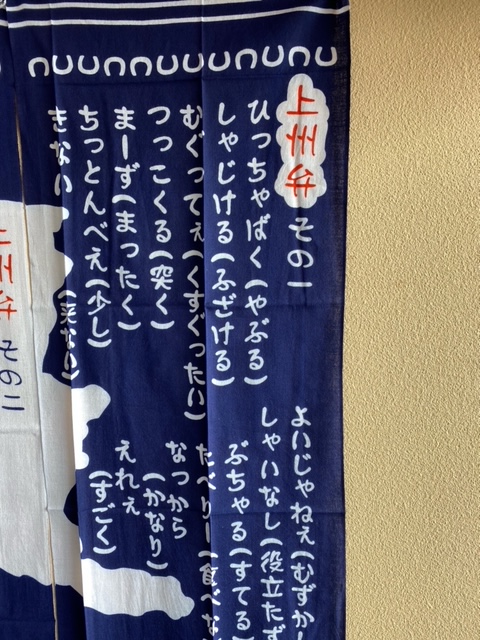 上州弁 その一
ひっちゃばく(やぶる)
しゃじける(ふざける)
むぐってぇ(くすぐったい)
つっこくる(突く)
まーず(まったく)
ちっとんべぇ(少し)
きない(来ない)
よいじゃねぇ(むずかし
しゃいなし(役立たず
ぶちゃる(すてる)
たべりー(食べな
なっから
(かなり)
えれぇ
(すごく)
上州弁 その二